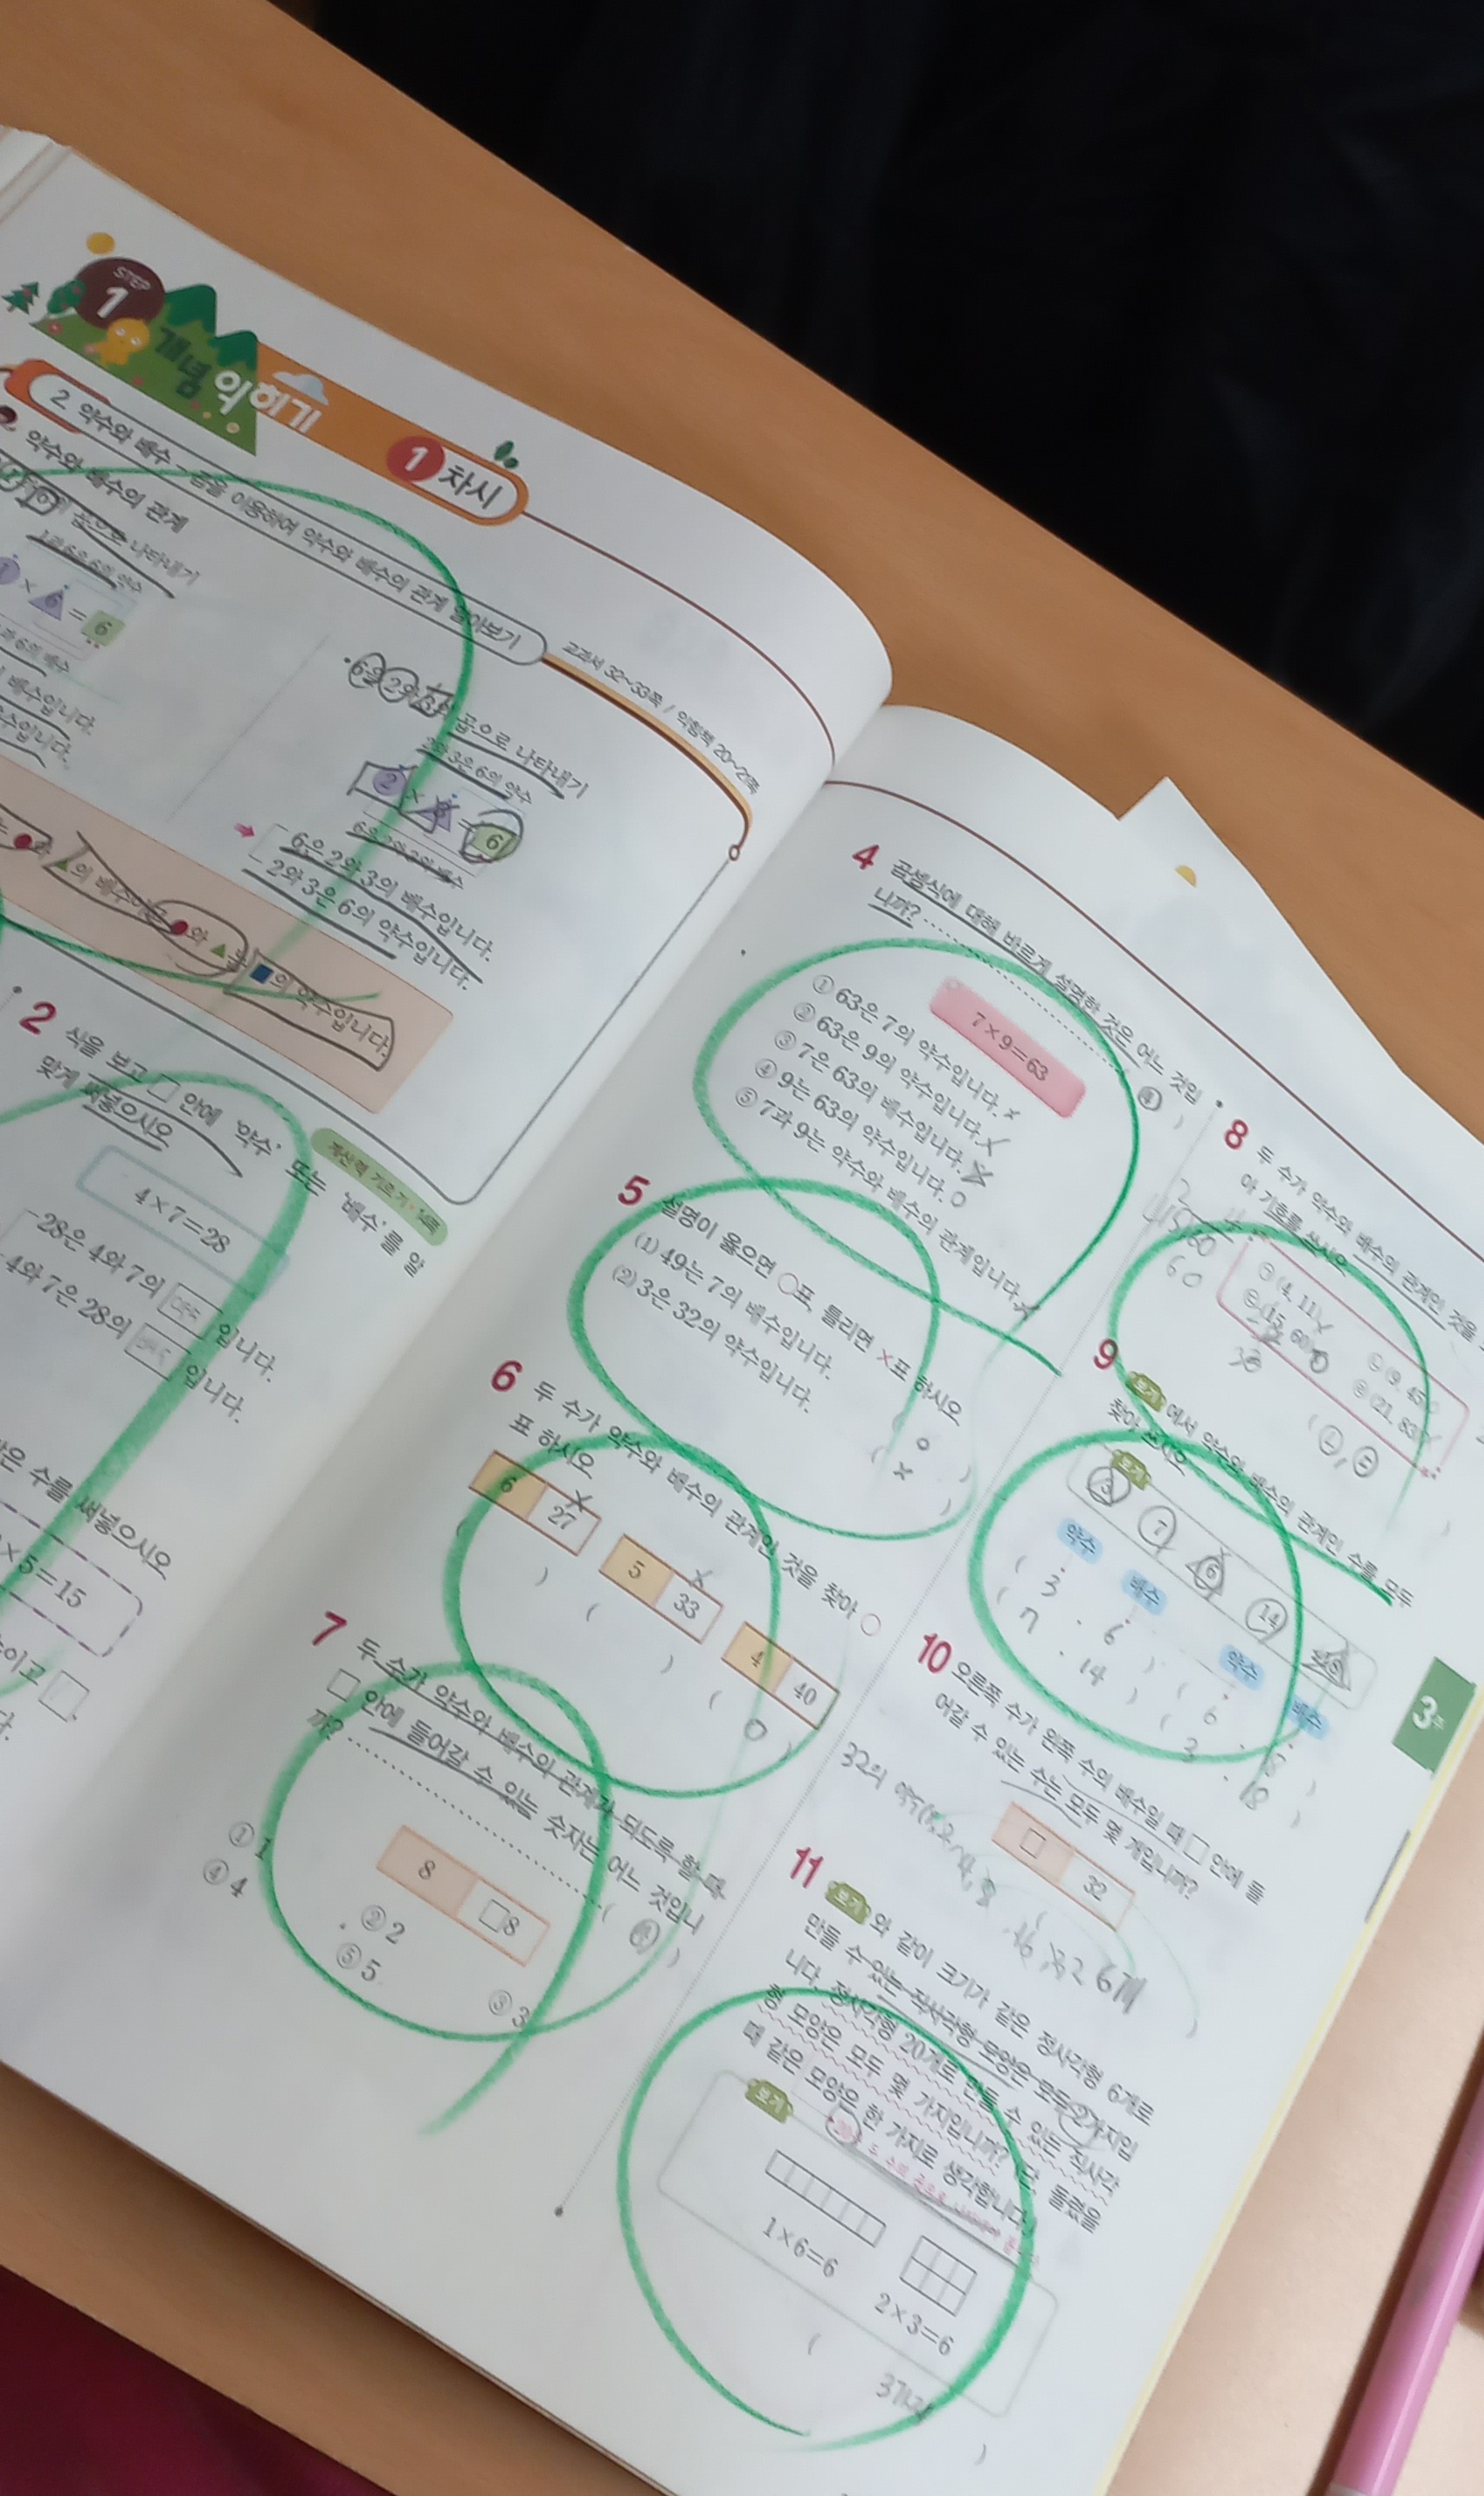 STEP
1
개념 익히기
1 차시
2. 약수와 배수 - 곱을 이용하여 약수와 배수의 관계 알아보기
교과서 32~33쪽 / 익힘책 20~21쪽
약수와 배수의 관계
곱으로 나타내기
1과 6은 6의 약수
1 × 6 = 6
배수입니다.
• 6을 2와 3의 곱으로 나타내기
2와 3은 6의 약수
2 × 3 = 6
6은 2와 3의 배수
6은 2와 3의 배수입니다.
2와 3은 6의 약수입니다.
의 배수이고 ●와 ▲는 ■의 약수입니다.
계산력 기르기
2 식을 보고 □ 안에 '약수' 또는 '배수'를 알
맞게 써넣으시오
4×7=28
28은 4와 7의 배수 입니다.
4와 7은 28의 약수 입니다.
은 수를 써넣으시오
×5=15
이고
4 곱셈식에 대해 바르게 설명한 것은 어느 것입
니까? ( ④ )
7×9=63
① 63은 7의 약수입니다. ×
② 63은 9의 약수입니다. ×
③ 7은 63의 배수입니다. ×
④ 9는 63의 약수입니다. ○
⑤ 7과 9는 약수와 배수의 관계입니다. ×
5 설명이 옳으면 ○표, 틀리면 ×표 하시오
(1) 49는 7의 배수입니다. ( ○ )
(2) 3은 32의 약수입니다. ( × )
6 두 수가 약수와 배수의 관계인 것을 찾아 ○
표 하시오
6 27 ×
5 33 ×
4 40
( ) ( ) ( ○ )
7 두 수가 약수와 배수의 관계가 되도록 할 때
□ 안에 들어갈 수 있는 숫자는 어느 것입니
까? ( ④ )
8 □8
① 1 ② 2 ③ 3
④ 4 ⑤ 5
8 두 수가 약수와 배수의 관계인 것을
아 기호를 쓰시오
㉠ (4, 11) × ㉡ (9, 45)
㉢ (15, 60) ○ ㉣ (21, 63)
( ㉡, ㉢ )
60
9 보기 에서 약수와 배수의 관계인 수를 모두
찾아 쓰시오
보기
3 7 6 14 18
약수 배수 약수 배수
( 3 , 6 ) ( 6 , 18 )
( 7 , 14 ) ( 3 , 18 )
10 오른쪽 수가 왼쪽 수의 배수일 때 □ 안에 들
어갈 수 있는 수는 모두 몇 개입니까?
□ 32
32의 약수 1, 2, 4, 8, 16, 32 6개
11 보기 와 같이 크기가 같은 정사각형 6개로
만들 수 있는 직사각형 모양은 모두 2가지입
니다. 정사각형 20개로 만들 수 있는 직사각
형 모양은 모두 몇 가지입니까? (단, 돌렸을
때 같은 모양은 한 가지로 생각합니다.)
보기
1×6=6
2×3=6
( 3가지 )
3주